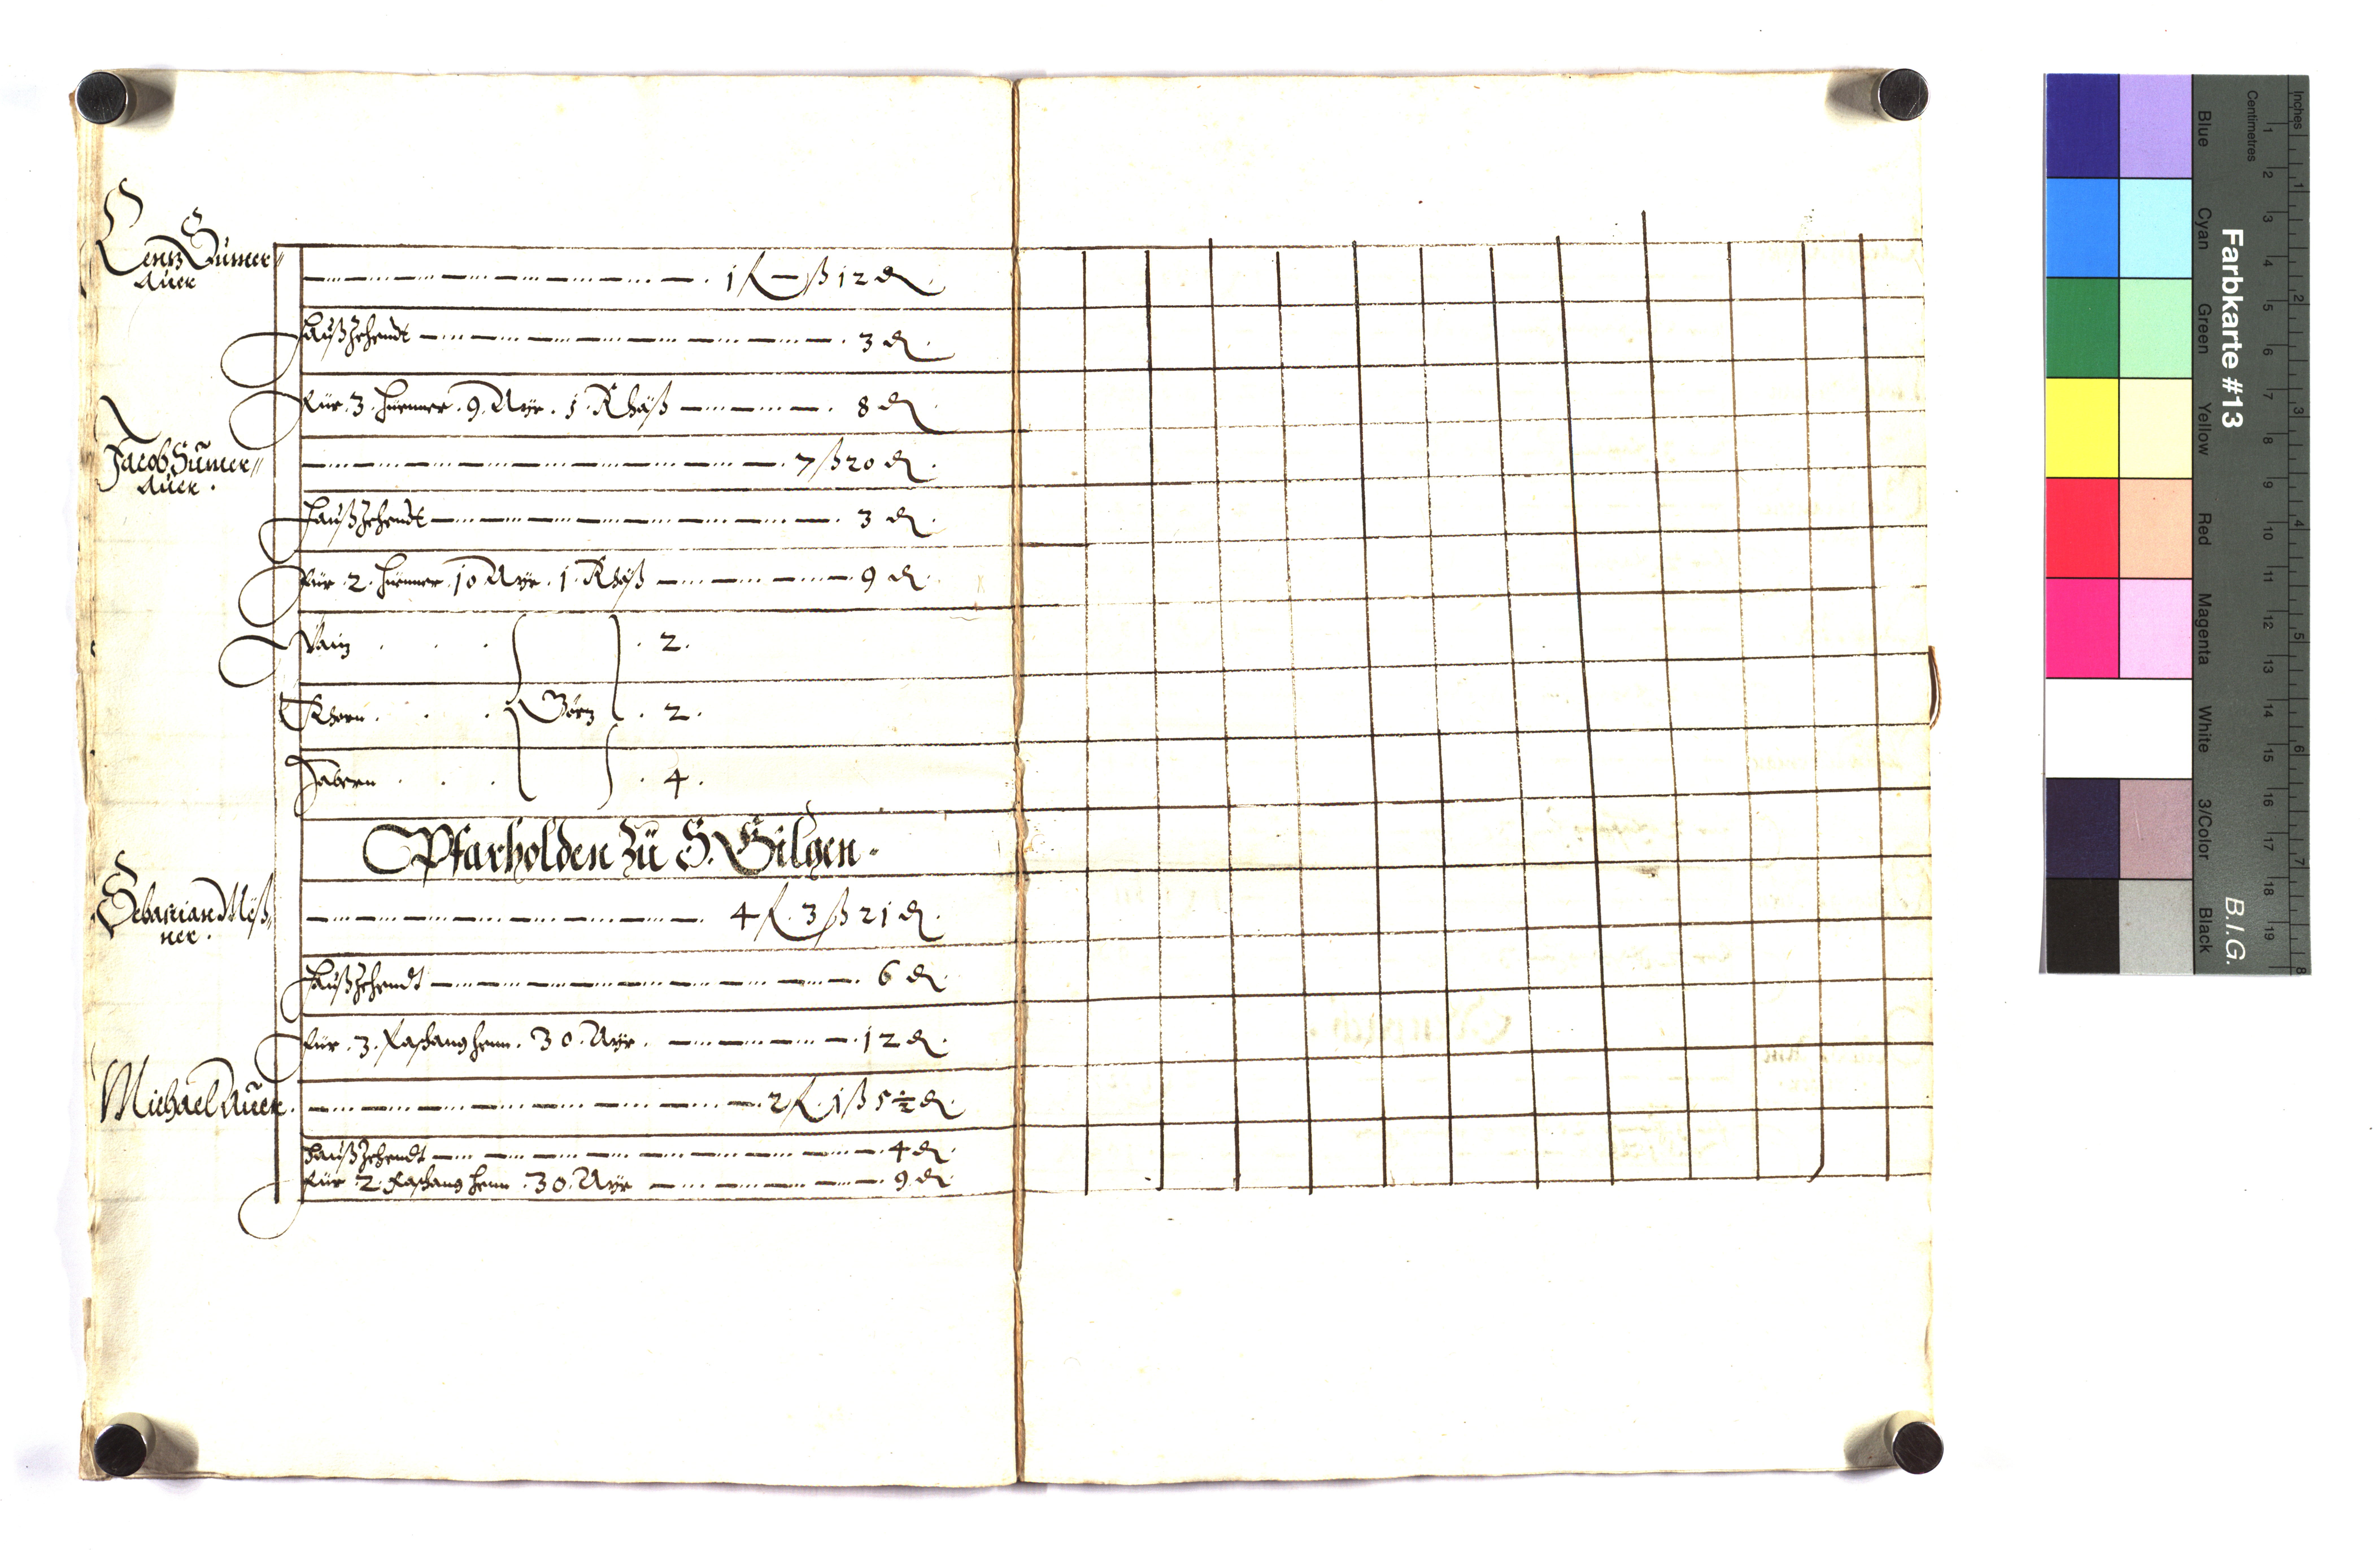 Lentz Sumer„
Auer
1 f — ß 12 ₰.
Haußzehendt 3 ₰.
Für 3. Hüenner. 9. Ayr. 1. Khäß 8 ₰.
Jacob Sumer„
Auer.
7 ß 20 ₰.
Haußzehendt 3 ₰.
Für 2. Hüenner. 10 Ayr. 1. Khäß 9 ₰.
Waiz . . . 2.
Khorn . . . Görz . 2.
Habern . . . 4.
Pfarholden zu S. Gilgen.
Sebastian Möß„
ner.
4 f. 3 ß 21 ₰.
Haußzehendt 6 ₰
Für 3. Faschang Henn. 30. Ayr. 12 ₰.
Michael Auer.
2 f. 1 ß 5 ½ ₰.
Haußzehendt 4 ₰.
Für 2. Faschang Henn. 30. Ayr 9 ₰
Farbkarte #13
B.I.G.
Inches
Centimetres
Blue
Cyan
Green
Yellow
Red
Magenta
White
3/Color
Black
1 2 3 4 5 6 7 8 9 10 11 12 13 14 15 16 17 18 19
1 2 3 4 5 6 7 8